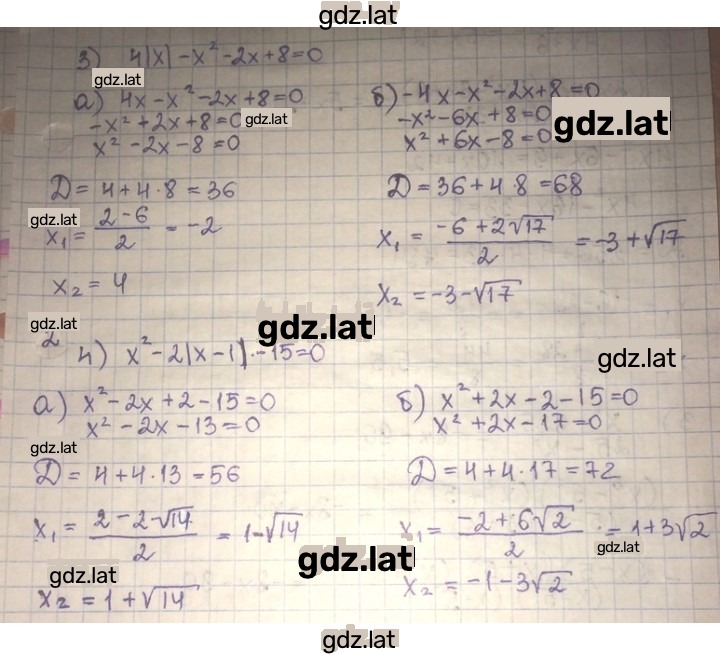 gdz.lat
3) 4|x| - x² - 2x + 8 = 0
gdz.lat
а) 4x - x² - 2x + 8 = 0
б) -4x - x² - 2x + 8 = 0
-x² + 2x + 8 = 0
gdz.lat
-x² - 6x + 8 = 0
gdz.lat
x² - 2x - 8 = 0
x² + 6x - 8 = 0
D = 4 + 4 · 8 = 36
D = 36 + 4 · 8 = 68
gdz.lat
x₁ = (2 - 6)/2 = -2
x₁ = (-6 + 2√17)/2 = -3 + √17
x₂ = 4
x₂ = -3 - √17
gdz.lat
gdz.lat
2
4) x² - 2|x - 1| - 15 = 0
gdz.lat
а) x² - 2x + 2 - 15 = 0
б) x² + 2x - 2 - 15 = 0
x² - 2x - 13 = 0
x² + 2x - 17 = 0
gdz.lat
D = 4 + 4 · 13 = 56
D = 4 + 4 · 17 = 72
x₁ = (2 - 2√14)/2 = 1 - √14
x₁ = (-2 + 6√2)/2 = 1 + 3√2
gdz.lat
gdz.lat
gdz.lat
x₂ = 1 + √14
x₂ = -1 - 3√2
gdz.lat